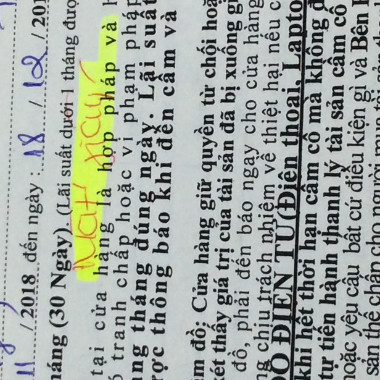 11 / 2018 đến ngày : 18 / 12 / 201
háng (30 Ngày). (Lãi suất dưới 1 tháng đượ
tại cửa hàng là hợp pháp và h
ó tranh chấp hoặc vi phạm pháp
ng tháng đúng ngày. Lãi suất
ợc thông báo khi đến cầm và
ầm đồ; Cửa hàng giữ quyền từ chối hoặ
xét thấy giá trị của tài sản đã bị xuống gi
đồ, phải đến báo ngay cho cửa hàng
g chịu trách nhiệm về thiệt hại nếu c
ĐỒ ĐIỆN TỬ(Điện thoại, Lapto
khi hết thời hạn cầm cố mà không đ
tự tiến hành thanh lý tài sản cầm cố
hoặc yêu cầu bất cứ điều kiện gì và Bên B